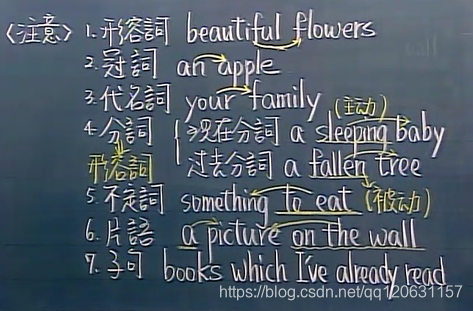 〈注意〉 1. 形容詞 beautiful flowers
2. 冠詞 an apple
3. 代名詞 your family (主动)
4. 分詞 { 现在分詞 a sleeping baby
形容詞 过去分詞 a fallen tree
5. 不定詞 something to eat (被动)
6. 片語 a picture on the wall
7. 子句 books which I've already read
https://blog.csdn.net/qq120631157